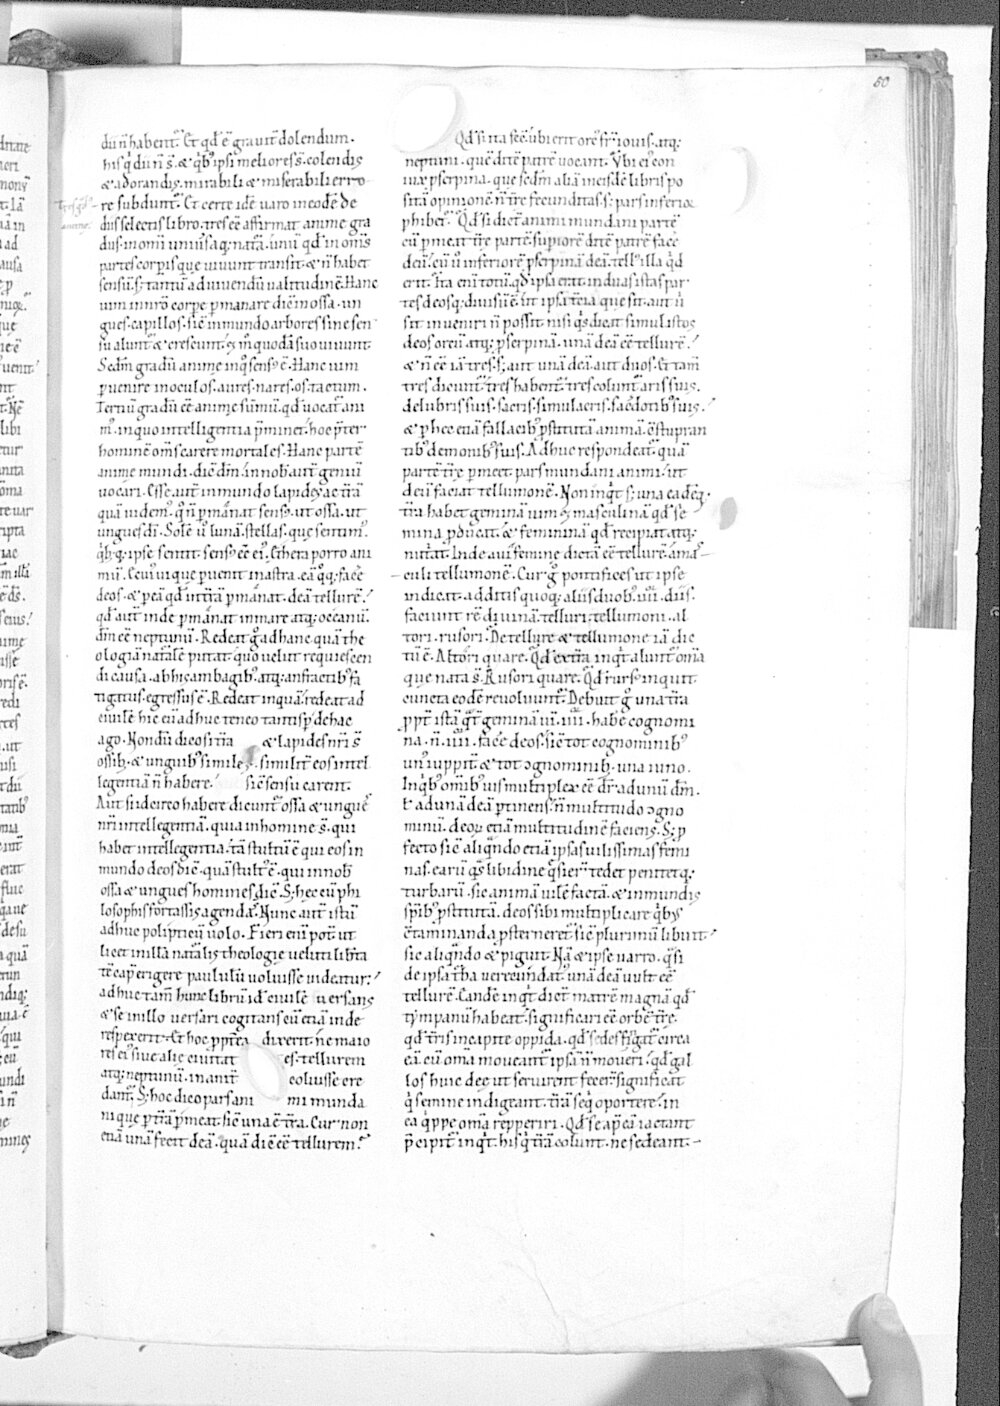 50
dū ñ habent̃. Et qd̃ ē grauit̃ dolendum.
hisq; dū ñ s̃. & q̃b; ipsi meliores s̃. colendis
& adorandis. mirabili & miserabili erro-
re subdunt̃. Et certe idē uaro in eodē de
diis selectis libro. tres eē affirmat anime gra
dus. in omni uniuersaq; nat̃a. unū qd̃ in om̃s
partes corporis que uiuunt transit. & ñ habet
sensū. s; tantū ad uiuendū ualitudinē. Hanc
uim in nr̃o corpe p̱manare dic̃. in ossa. un
gues. capillos. sic̃ in mundo arbores sine sen
su alunt̃ & crescunt. & m̃ quodā suo uiuunt.
Scdm̃ gradū anime in quo sensꝰ ē. Hanc uim
p̱uenire in oculos. aures. nares. os. tactum.
Tertiū gradū eē anime sum̃ū. qd̃ uocat̃ ani
mꝰ. in quo intelligentia p̃minet. hoc p̃ter
hominē om̃s carere mortales. Hanc partē
anime mundi. dic̃ dm̃. in nobis aut̃ geniū
uocari. Esse aut̃ in mundo lapides ac tr̃ā
quā uidemꝰ. q̃ ñ p̱manat sensꝰ. ut ossa. ut
ungues di. Solē ū lunā. stellas. que sentimꝰ.
q̃b; q; ipse sentit. sensꝰ eē eiꝰ. Ethera porro ani
mū. Cuiꝰ ui que puenit in astra. eā q̃q; facẽ
deos. & p eā qd̃ in tr̃a p̱manat. deā tellurē.
qd̃ aut̃ inde p̱manat in mare atq; oceanū.
dm̃ eē neptunū. Redeat g̃ ad hanc quā the
ologiā nat̃alē putat. quo uelut requiescen
di causa. ab his ambagibꝰ atq; anfractibꝰ fa
tigatus. egressus ē. Redeat inquā. redeat ad
ciuilē. hic eū adhuc teneo. tantisp̱ de hac
ago. Nondū dico si tr̃a & lapides nr̃is s̃
ossib; & unguibꝰ simile s. similit̃ eos intel
legentiā ñ habere. sic̃ sensu carent.
Aut si idcirco habere dicunt̃ ossa & ungueˢ
nr̃i intellegentiā. quia in homine s̃. qui
habet intellegentiā. tā stultū ē qui eos in
mundo deos dic̃. quā stultꝰ ē. qui in nobˢ
ossa & ungues homines dic̃. S; hec cū phi
losophis fortassis agenda s̃. Nunc aut̃ istū
adhuc politicū uolo. Fieri eni pot̃. ut
licet in illā nat̃alis theologie ueluti lib̃ta
tē cap̃ erigere paululū uoluisse uideatur.
adhuc tam̃ hunc librū id ē ciuilē uersans
& se in illo uersari cogitans eū etiā inde
respexerit. Et hoc ppt̃ea dixerit. ne maio
res eiꝰ siue alie ciuitat es. tellurem
atq; neptunū. inanit̃ coluisse cre
dant̃. S; hoc dico. pars ani mi munda
ni que p̱ tr̃ā p̱meat. sic̃ una ē tr̃a. Cur non
etiā unā fecit deā. quā dic̃ eē tellurem?
Qd̃ si ita fec̃. ubi erit orcꝰ fr̃ iouis. atq;
neptuni. quē ditē patrē uocant. Vbi eiꝰ con
iux pserpina. que scdm̃ aliā in eisdē libris po
sitā opinionē. ñ tr̃e fecunditas. s; pars inferior
phibet̃. Qd̃ si dict̃ animi mundani partē
cū p̱meat tr̃e partē supiorē ditē patrē facẽ
deū. cū ū inferiorē pserpinā deā. tellꝰ illa qd̃
erit. Ita eni totū. qd̃ ipsa erat. in duas istas par
tes deosq; diuisū ē. ut ipsa tr̃cia que sit. aut ū
sit inueniri ñ possit. nisi q̃s dicat simul istos
deos orcū atq; pserpinā. unā deā eē tellurē.
& ñ eē iā tres. s; aut unā deā. aut duos. Et tam̃
tres dicunt̃. tres habent̃. tres colunt̃ aris suis.
delubris suis. sacris. simulacris. sacerdotibꝰ suis.
& p hec etiā fallacibꝰ pstitutā animā cōstupran
tibꝰ demonibꝰ suis. Adhuc respondeat̃. quā
partē tr̃e p̱meet pars mundani animi. ut
deū faciat tellumonē. Non inq̃t. s; una eadēq;
tr̃a habet geminā uim. & masculinā qd̃ se
mina pducat. & feminina qd̃ recipiat atq;
nut̃at. Inde a ui femine dictā eē tellurē. a mas
culi tellumonē. Cur g̃ pontifices ut ipse
indicat. additis quoq; aliis duobꝰ. iiii. diis.
faciunt rē diuinā. telluri. tellumoni. al
tori. rusori. De tellure & tellumone iā dic
tū ē. Altori quare. Qd̃ ex tr̃a inq̃t alunt̃ om̃ia
que nata s̃. Rusori quare. Qd̃ rursꝰ inquit
cuncta eodē reuoluunt̃. Debuit g̃ una tr̃a
ppt̃ istā q̃t̃geminā uī. iiii. habẽ cognomi
na. ñ. iiii. facẽ deos. sic̃ tot cognominibꝰ
unꝰ iuppit̃. & tot ɔgnominib; una iuno.
In q̃bꝰ om̃ibꝰ uis multiplex eē dr̃ ad unū dm̃.
ł ad unā deā p̱tinens. ñ multitudo ɔgno
minū. deoꝝ etiā multitudinē faciens. S; p
fecto sic̃ aliqñdo etiā ipsas uilissimas femi
nas. earū q̃s libidine q̃sier̃ tedet penitetq;
turbarū. sic animā uilē factā. & inmundis
sp̃ibꝰ pstitutā. deos sibi multiplicare q̃bꝰ
cōtaminanda psterneret̃. sic̃ plurimū libuit.
sic aliqñdo & piguit. Nā & ipse uarro. q̃si
de ipsa t̃ba uerecundatꝰ. unā deā uult eē
tellurē. Eandē inq̃t dict̃ matrē magnā. qd̃
tympanū habeat. significari eē orbē tr̃e.
qd̃ t̃ris in capite oppida. qd̃ sedes fĩgat̃ circa
eā. cū om̃a moueant̃ ipsā ñ moueri. qd̃ gal
los huic dee ut seruirent fecer̃. significat
q̃ semine indigeant. tr̃ā seq̃ oportere. in
ea q̃ppe om̃a repperiri. Qd̃ se ap̃ eā iactant
p̃cipit̃ inq̃t. hisq̃ tr̃ā colunt. ne sedeant.